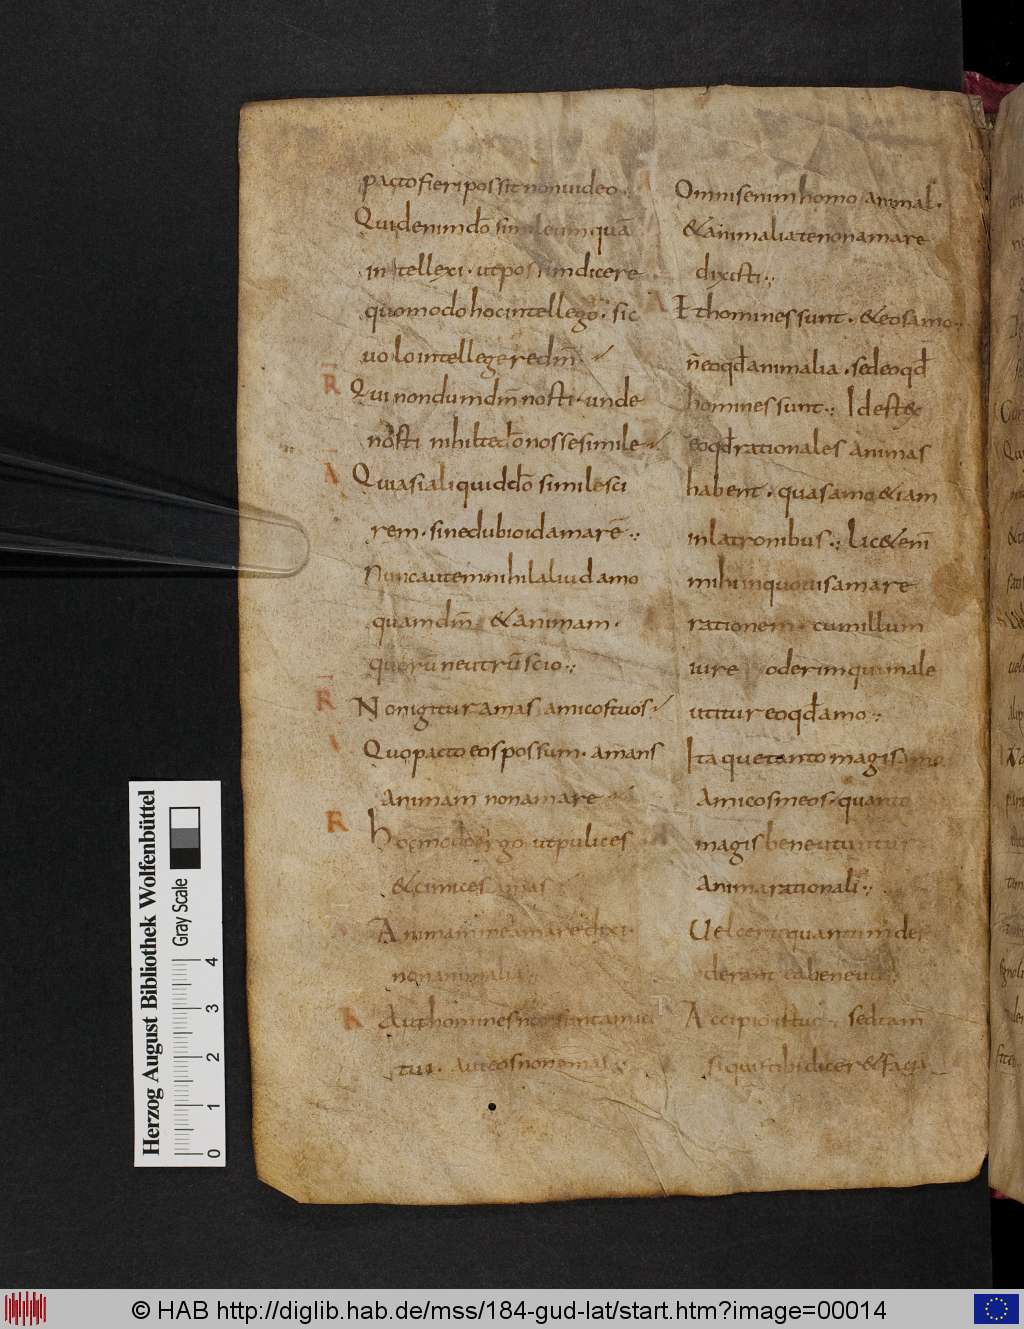 pacto fieri possit non uideo.
Quid enim dō simileum quā
intellexi. ut possim dicere
quomodo hoc intellego. sic
uolo intellegere dm̄
R̄
Qui nondum dm̄ nosti. unde
nosti nihil te dō nosse simile
Ā
Quia si aliquid dō simile sci
rem. sine dubio id amarē.
Nunc autem nihil aliud amo
quam dm̄ & animam.
quorū neutrū scio.
R̄
Non igitur amas amicos tuos
Quo pacto eos possum. amans
animam non amare
R
Hoc modo ergo ut pulices
& cimices amas
Animam me amare dixi.
non animalia
R
Aut homines non sunt amici
tui. aut eos non amas
Omnis enim homo animal.
& animalia te non amare
dixisti
A
Et homines sunt. & eos amo
n̄ eo qd̄ animalia. sed eo qd̄
homines sunt. Id est &
eo qd̄ rationales animas
habent. quas amo & iam
in latronibus. Lic& enī
mihi in quouis amare
rationem. cum illum
iure oderim qui male
utitur eo qd̄ amo
Itaque tanto magis amo
amicos meos. quanto
magis bene utuntur
anima rationali
Uel certe quantum desi
derant ea bene uti
Accipio istuc. sed tam
si quis tibi dicer& facia
Herzog August Bibliothek Wolfenbüttel
Gray Scale
0 1 2 3 4
© HAB http://diglib.hab.de/mss/184-gud-lat/start.htm?image=00014